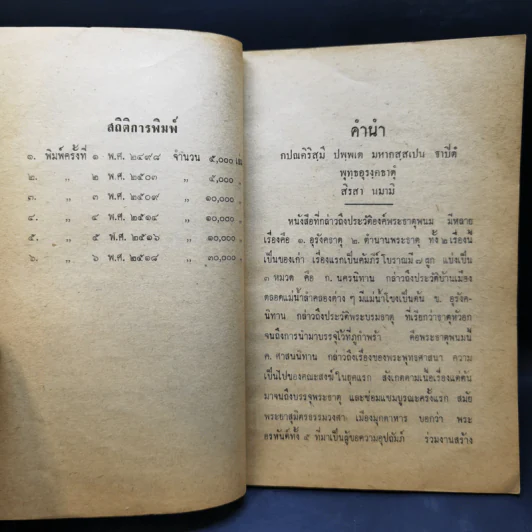 สถิติการพิมพ์
๑. พิมพ์ครั้งที่ ๑ พ.ศ. ๒๔๙๘ จำนวน ๕,๐๐๐
๒. ,, ๒ พ.ศ. ๒๕๐๓ ,, ๕,๐๐๐
๓. ,, ๓ พ.ศ. ๒๕๐๙ ,, ๑๐,๐๐๐
๔. ,, ๔ พ.ศ. ๒๕๑๔ ,, ๑๐,๐๐๐
๕. ,, ๕ พ.ศ. ๒๕๑๖ ,, ๑๐,๐๐๐
๖. ,, ๖ พ.ศ. ๒๕๑๘ ,, ๓๐,๐๐๐
คำนำ
กปณคิริสฺมึ ปพฺพเต มหากสฺสเปน ฐาปิตํ
พุทฺธอุรงฺคธาตุํ
สิรสา นมามิ
หนังสือที่กล่าวถึงประวัติองค์พระธาตุพนม มีหลาย
เรื่องคือ ๑. อุรังคธาตุ ๒. ตำนานพระธาตุ ทั้ง ๒ เรื่องนี้
เป็นของเก่า เรื่องแรกเป็นคัมภีร์โบราณมี ๗ ผูก แบ่งเป็น
๓ หมวด คือ ก. นครนิทาน กล่าวถึงประวัติบ้านเมือง
ตลอดแม่น้ำลำคลองต่าง ๆ มีแม่น้ำโขงเป็นต้น ข. อุรังค-
นิทาน กล่าวถึงประวัติพระบรมธาตุ ที่เรียกว่าธาตุหัวอก
จนถึงการนำมาบรรจุไว้ที่ภูกำพร้า คือพระธาตุพนมนี้
ค. ศาสนนิทาน กล่าวถึงเรื่องของพระพุทธศาสนา ความ
เป็นไปของคณะสงฆ์ในยุคแรก สังเกตตามเนื้อเรื่องแต่ต้น
มาจนถึงบรรจุพระธาตุ และซ่อมแซมบูรณะครั้งแรก สมัย
พระยาสุมิตธรรมวงศา เมืองมุกดาหาร บอกว่า พระ
อรหันต์ทั้ง ๕ ที่มาเป็นผู้ขอความอุปถัมภ์ ร่วมงานสร้าง